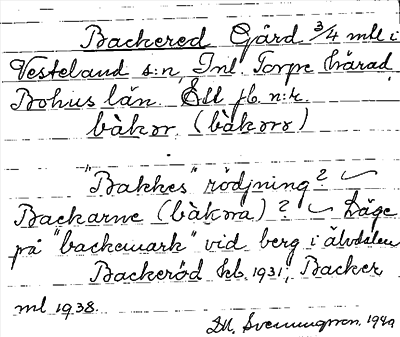 Backered Gård 3/4 mtl i
Vesteland s:n, Inl. Torpe härad,
Bohus län. Ett fb. n:r.
bàkər (bàkərə)
"Bakkes" rödjning?
Backarne (bàkɷa)? Läge
på "backemark" vid berg i älvdalen
Backeröd kb. 1931, Backer
ml 1938.
M. Svenningson. 1940